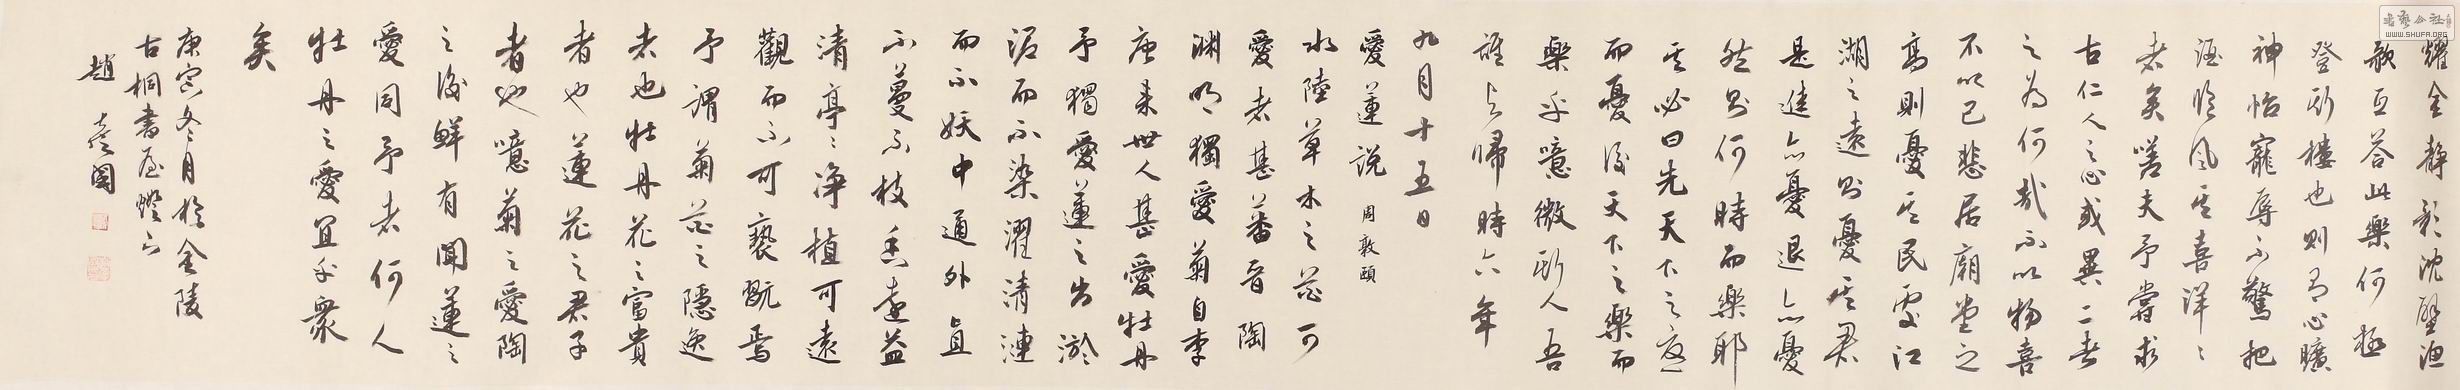 耀金靜影沈璧漁
歌互答此樂何極
登斯樓也則有心曠
神怡寵辱不驚把
酒臨風其喜洋〻
者矣嗟夫予嘗求
古仁人之心或異二者
之為何哉不以物喜
不以己悲居廟堂之
高則憂其民處江
湖之遠則憂其君
是進亦憂退亦憂
然則何時而樂耶
其必曰先天下之憂
而憂後天下之樂而
樂乎噫微斯人吾
誰與歸時六年
九月十五日
愛蓮說 周敦頤
水陸草木之花可
愛者甚蕃晉陶
淵明獨愛菊自李
唐來世人甚愛牡丹
予獨愛蓮之出淤
泥而不染濯清漣
而不妖中通外直
不蔓不枝香遠益
清亭〻淨植可遠
觀而不可褻翫焉
予謂菊花之隱逸
者也牡丹花之富貴
者也蓮花之君子
者也噫菊之愛陶
之後鮮有聞蓮之
愛同予者何人
牡丹之愛宜乎眾
矣
庚寅冬月於金陵
古桐書屋燈下
趙
書藝公社
WWW.SHUFA.ORG